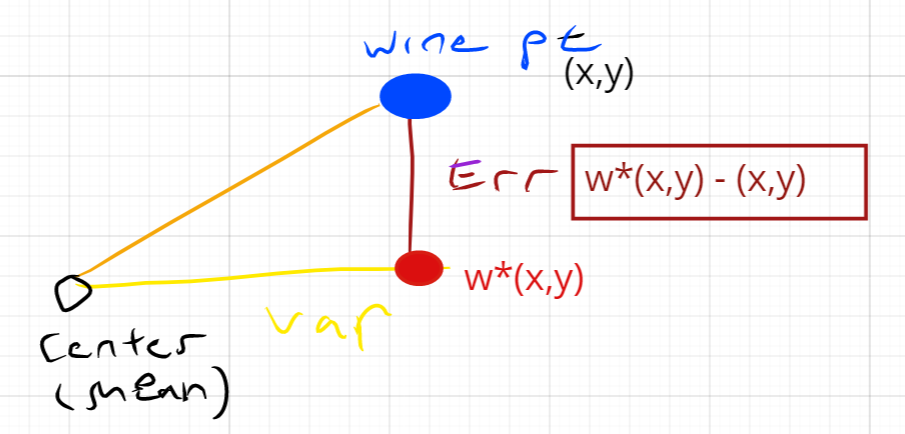 wine pt
(x,y)
Err
w*(x,y) - (x,y)
w*(x,y)
var
Center
(mean)